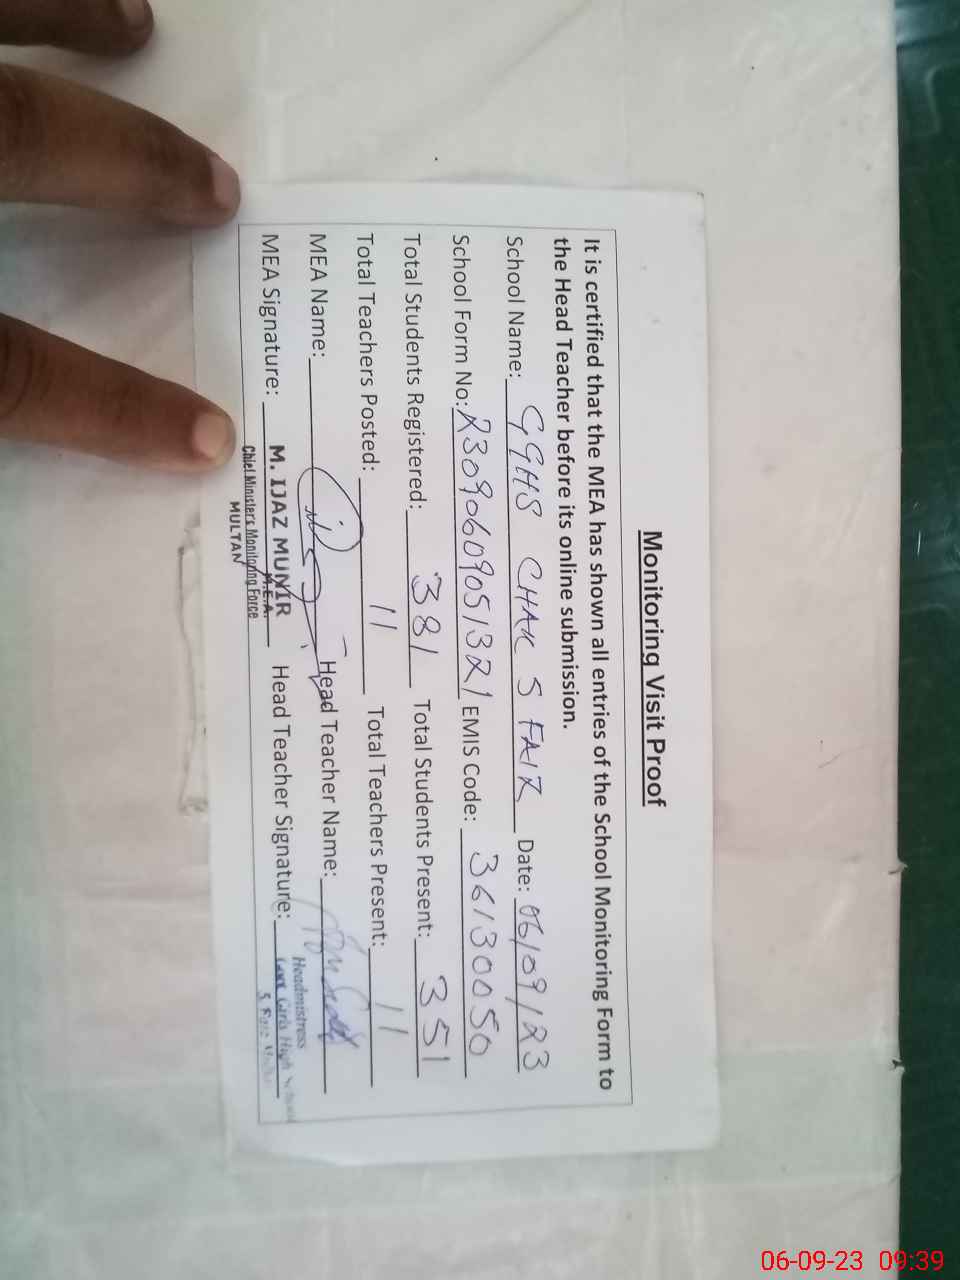 Monitoring Visit Proof
It is certified that the MEA has shown all entries of the School Monitoring Form to
the Head Teacher before its online submission.
School Name: GGHS CHAK 5 FAIZ Date: 06/09/23
School Form No: 23090609051321 EMIS Code: 36130050
Total Students Registered: 381 Total Students Present: 351
Total Teachers Posted: 11 Total Teachers Present: 11
MEA Name: Head Teacher Name:
MEA Signature: M. IJAZ MUNIR Head Teacher Signature: Headmistress
M.E.A. Govt Girls High School
Chief Minister's Monitoring Force 5 Faiz Multan
MULTAN
06-09-23 09:39